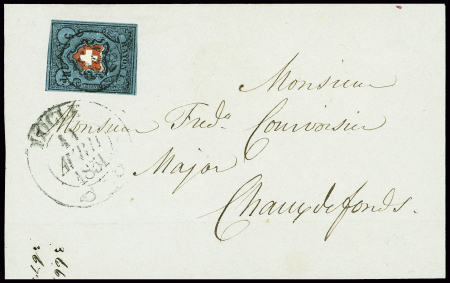 RAYON
Monsieur
Monsieur Fredc. Courvoisier
Major
Chauxdefonds.
11
AVRIL
1851
366